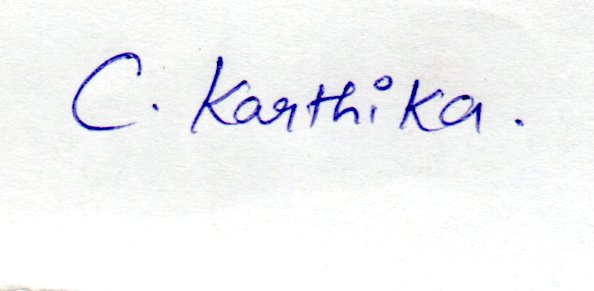 C. Karthika.